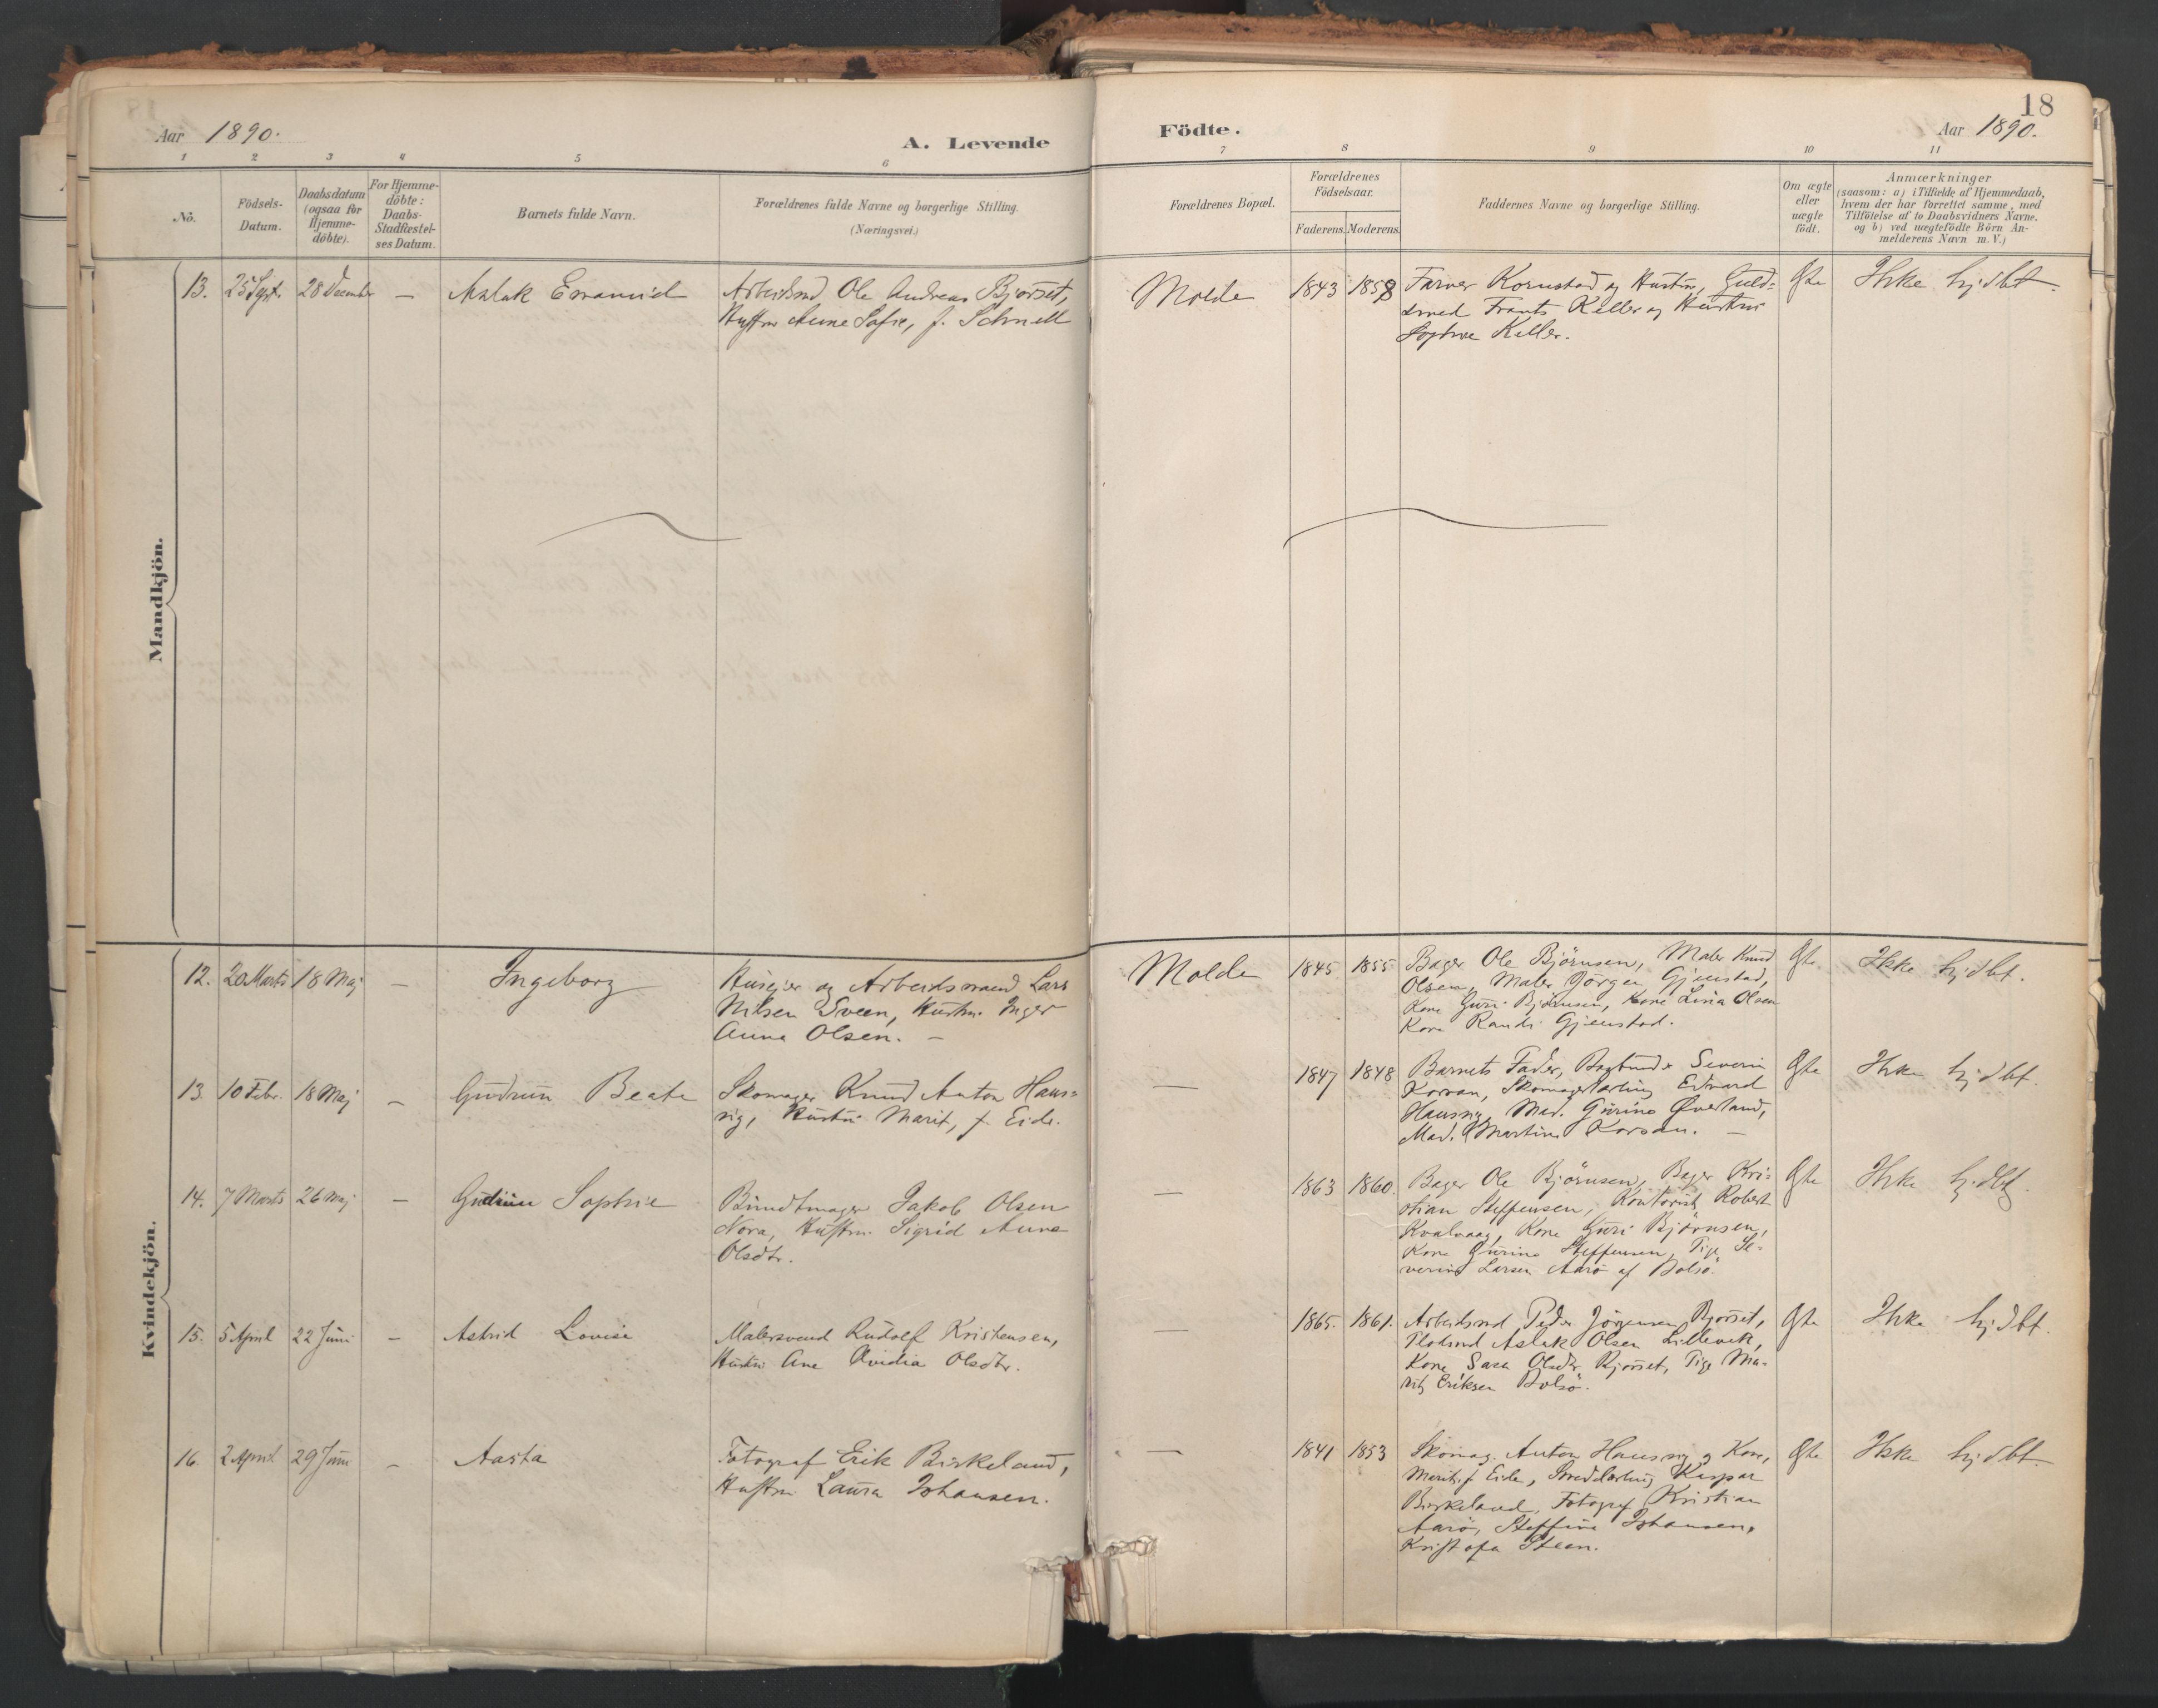 18
Aar 1890.
A. Levende
Födte.
Aar 1890.
1 2 3 4 5 6 7 8 9 10 11
No.
Födsels-
Datum.
Daabsdatum
(ogsaa for
Hjemme-
döbte).
For Hjemme-
döbte:
Daabs-
Stadfæstel-
ses Datum.
Barnets fulde Navn.
Forældrenes fulde Navne og borgerlige Stilling.
(Næringsvei.)
Forældrenes Bopæl.
Forældrenes
Födselsaar.
Faderens. Moderens.
Faddernes Navne og borgerlige Stilling.
Om ægte
eller
uægte
födt.
Anmærkninger
(saasom: a) i Tilfælde af Hjemmedaab,
hvem der har forrettet samme, med
Tilföielse af to Daabsvidners Navne.
og b) ved uægtefödte Börn An-
melderens Navn m.V.)
Mandkjön.
13. 25 Sept. 28 December — Aslak Emanuel
Arbeidsmd Ole Andreas Bjorset,
Hustru Anne Sofie, f. Schnell
Molde 1843 1858
Farver Kornstad og Hustru, Guld-
smed Frants Keller og Hustru
Sophie Keller.
Ægte Ikke hjdbt.
Kvindekjön.
12. 20 Marts 18 Maj — Ingeborg
Husejer og Arbeidsmand Lars
Nilsen Sveen, Hustru Inger
Anna Olsen. —
Molde 1845 1855
Bager Ole Björnsen, Maler Knud
Olsen, Maler Jörgen Gjenstad,
Kone Guri Björnsen, Kone Lina Olsen
Kone Randi Gjenstad.
Ægte Ikke hjdbt.
13. 10 Febr. 18 Maj — Gudrun Beate
Skomager Knud Anton Haus-
sig, Hustru Marit, f. Eide.
— 1847 1848
Barnets Fader, Bogbinder Severin
Korsan, Skomagerlærling Edvard
Haussig, Mad. Gurine Överland,
Mad. Martine Korsan. —
Ægte Ikke hjdbt.
14. 7 Marts 26 Maj — Gudrun Sophie
Bundtmager Jakob Olsen
Nora, Hustru Sigrid Anna
Olsdtr.
— 1863 1860.
Bager Ole Björnsen, Bager Kri-
stian Steffensen, Kontorist Robert
Kvalvaag, Kone Guri Björnsen,
Kone Gurine Steffensen, Pige Se-
verine Larsen Aarö af Bolsö.
Ægte Ikke hjdbt.
15. 5 April 22 Juni — Astrid Lovise
Malersvend Rudolf Kristensen,
Hustru Ane Ovidia Olsdtr.
— 1865. 1861.
Arbeidsmd Peder Jörgensen Bjorset,
Aslak Olsen Lillevik,
Kone Sara Olsdtr. Bjorset, Pige Ma-
rit Eriksen Bolsö.
Ægte Ikke hjdbt.
16. 2 April 29 Juni — Aasta
Fotograf Erik Birkeland,
Hustru Laura Johansen.
— 1841 1853
Skomag. Anton Haussig og Kone,
Marit f. Eide, Kaspar
Birkeland, Fotograf Kristian
Aarö, Steffine Johansen,
Kristofa Steen.
Ægte Ikke hjdbt.